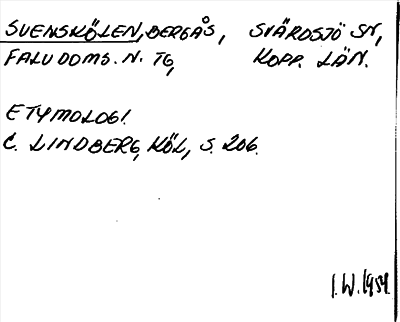 SVENSKÖLEN, BERGÅS, SVÄRDSJÖ SN,
FALU DOMS. N. TG, KOPP. LÄN.
ETYMOLOGI.
C. LINDBERG, KÖL, S. 206.
I.W. 1959.